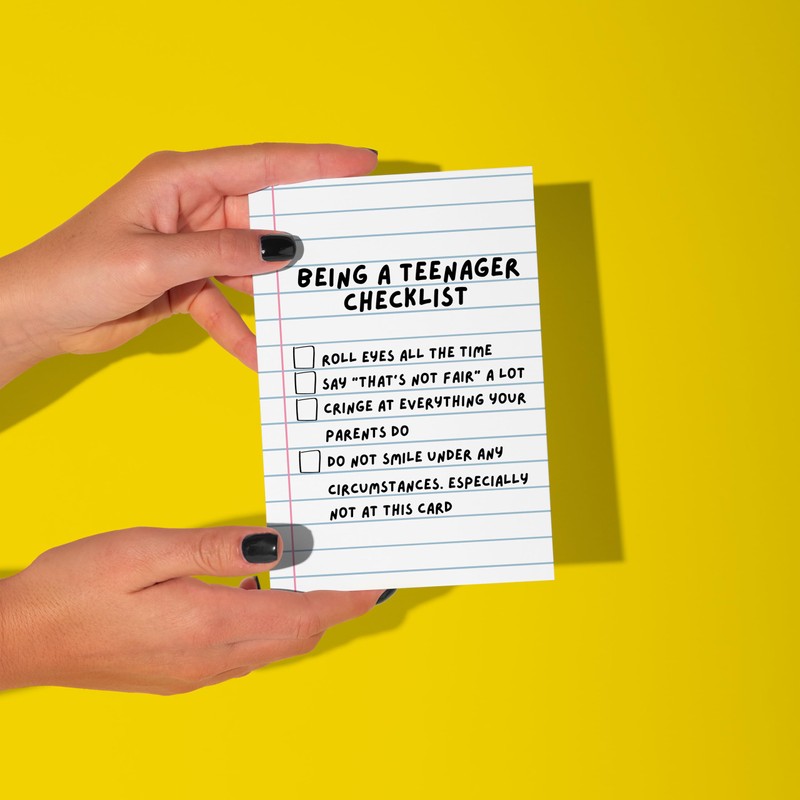 BEING A TEENAGER
CHECKLIST
ROLL EYES ALL THE TIME
SAY "THAT'S NOT FAIR" A LOT
CRINGE AT EVERYTHING YOUR
PARENTS DO
DO NOT SMILE UNDER ANY
CIRCUMSTANCES. ESPECIALLY
NOT AT THIS CARD